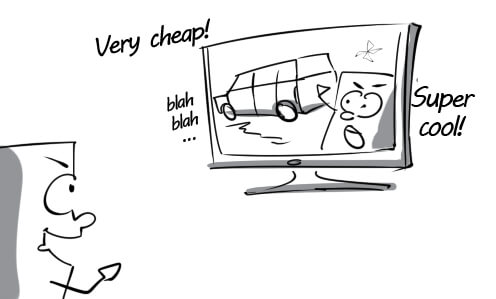 Very cheap!
blah
blah
...
Super
cool!